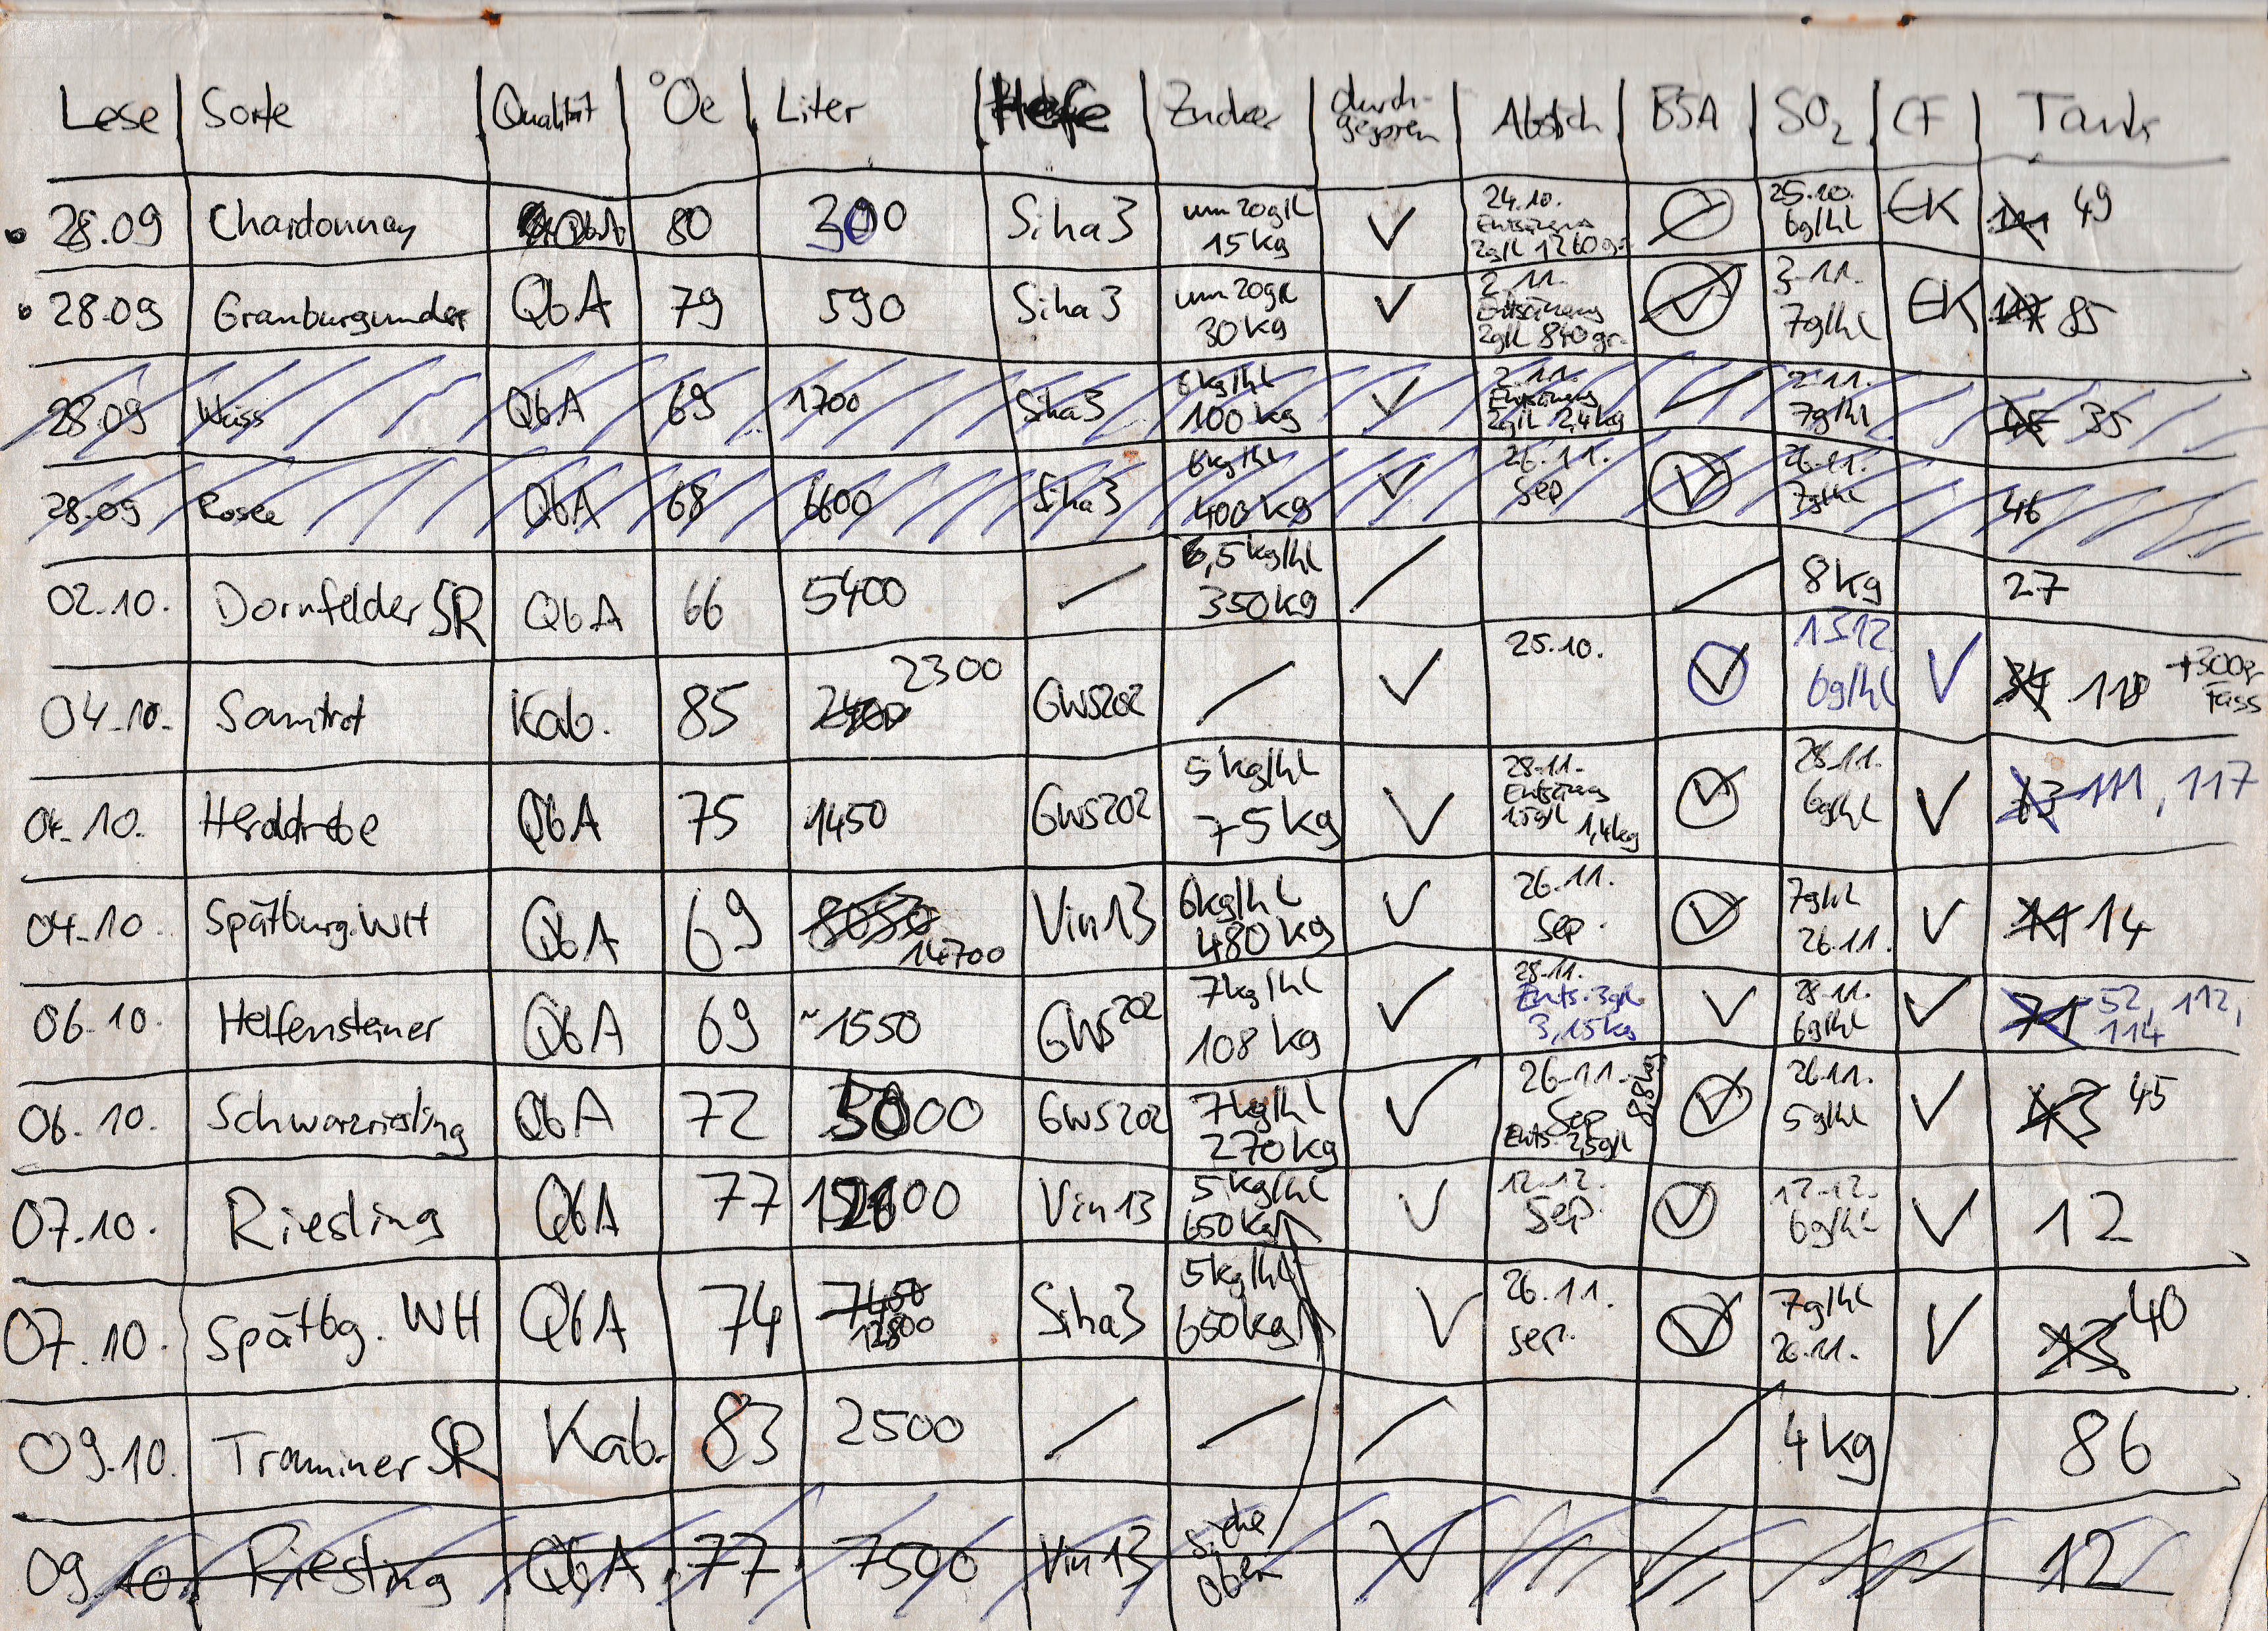 Lese Sorte Qualität °Oe Liter Hefe Zucker durch- gegoren Abstich BSA SO₂ CF Tank
28.09 Chardonnay QbA 80 300 Siha3 um 20g/l 15kg ✓ 24.10. Entsäuerg 2g/l 1260gr. 25.10. 6g/hl EK 49
28.09 Grauburgunder QbA 79 590 Siha3 um 20g/l 30kg ✓ 2.11. Entsäuerg 2g/l 840gr. ✓ 3.11. 7g/hl EK 85
28.09 Weiss QbA 69 1700 Siha3 6kg/hl 100kg ✓ 2.11. Entsäuerg 2g/l 2,4kg 2.11. 7g/hl 35
28.09 Rosee QbA 68 6600 Siha3 6kg/hl 400kg ✓ 26.11. Sep ✓ 26.11. 7g/hl 46
02.10. Dornfelder SR QbA 66 5400 / 6,5kg/hl 350kg / / 8kg 27
04.10. Samtrot Kab. 85 2300 GWS202 / ✓ 25.10. ✓ 15.12 6g/hl ✓ 34 118 +300er Fass
04.10. Herddrebe QbA 75 1450 GWS202 5kg/hl 75kg ✓ 28.11. Entsäuerg 1,5g/l 1,4kg ✓ 28.11. 6g/hl ✓ 73 111, 117
04.10. Spätburg. WH QbA 69 8050 14700 Vin13 6kg/hl 480kg ✓ 26.11. Sep. ✓ 7g/hl 26.11. ✓ 14
06.10. Helfensteiner QbA 69 ~1550 GWS202 7kg/hl 108kg ✓ 28.11. Ents. 3g/l 3,15kg ✓ 28.11. 6g/hl ✓ 71 52, 112, 114
06.10. Schwarzriesling QbA 72 GWS202 7kg/hl 270kg ✓ 26.11. Sep Ents. 2,5g/l 8,8kg ✓ 26.11. 5g/hl ✓ 43 45
07.10. Riesling QbA 77 Vin13 5kg/hl 650kg ✓ 12.12. Sep. ✓ 12.12. 6g/hl ✓ 12
07.10. Spätbg. WH QbA 74 7450 12800 Siha3 5kg/hl 650kg ✓ 26.11. sep. ✓ 7g/hl 26.11. ✓ 13 40
09.10. Traminer SR Kab. 83 2500 / / / / 4kg 86
09.10 Riesling QbA 77 7500 Vin13 siehe oben ✓ 12